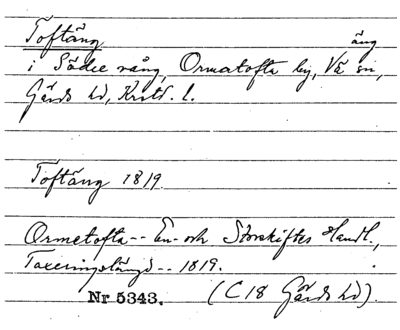 Toftäng äng
i Södre vång, Ormatofta by, Vä sn,
Gärds hd, Krist. l.
Toftäng 1819
Ormetofta -- En- och Storskiftes Handl.,
Taxeringslängd -- 1819.
Nr 5343. (C18 Gärds hd).